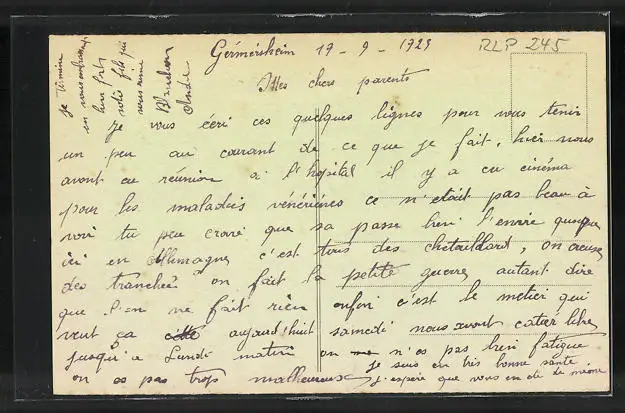 Germersheim 17-9-1929
RLP 245
Mes chers parents
Je vous écri ces quelques lignes pour vous tenir
un peu au courant de ce que je fait, hier nous
avont eu réunion a l'hopital il y a eu cinéma
pour les maladies vénériènes ce n'etait pas beau à
voir tu peu croire que sa passe bien l'envie quoique
ici en Allemagne c'est tous des , on creuse
des tranchées on fait la petite guerre autant dire
que l'on ne fait rien enfin c'est le metier qui
veut ça aujourd'huit samedi nous avont catier libre
jusqu'a Lundi matin on n'es pas bien fatigue
on es pas trop malheureux je suis en très bonne santé
j'espère que vous en ete de meme
je termine
en vous embrassant
bien fort
votre fils qui
vous aime
André